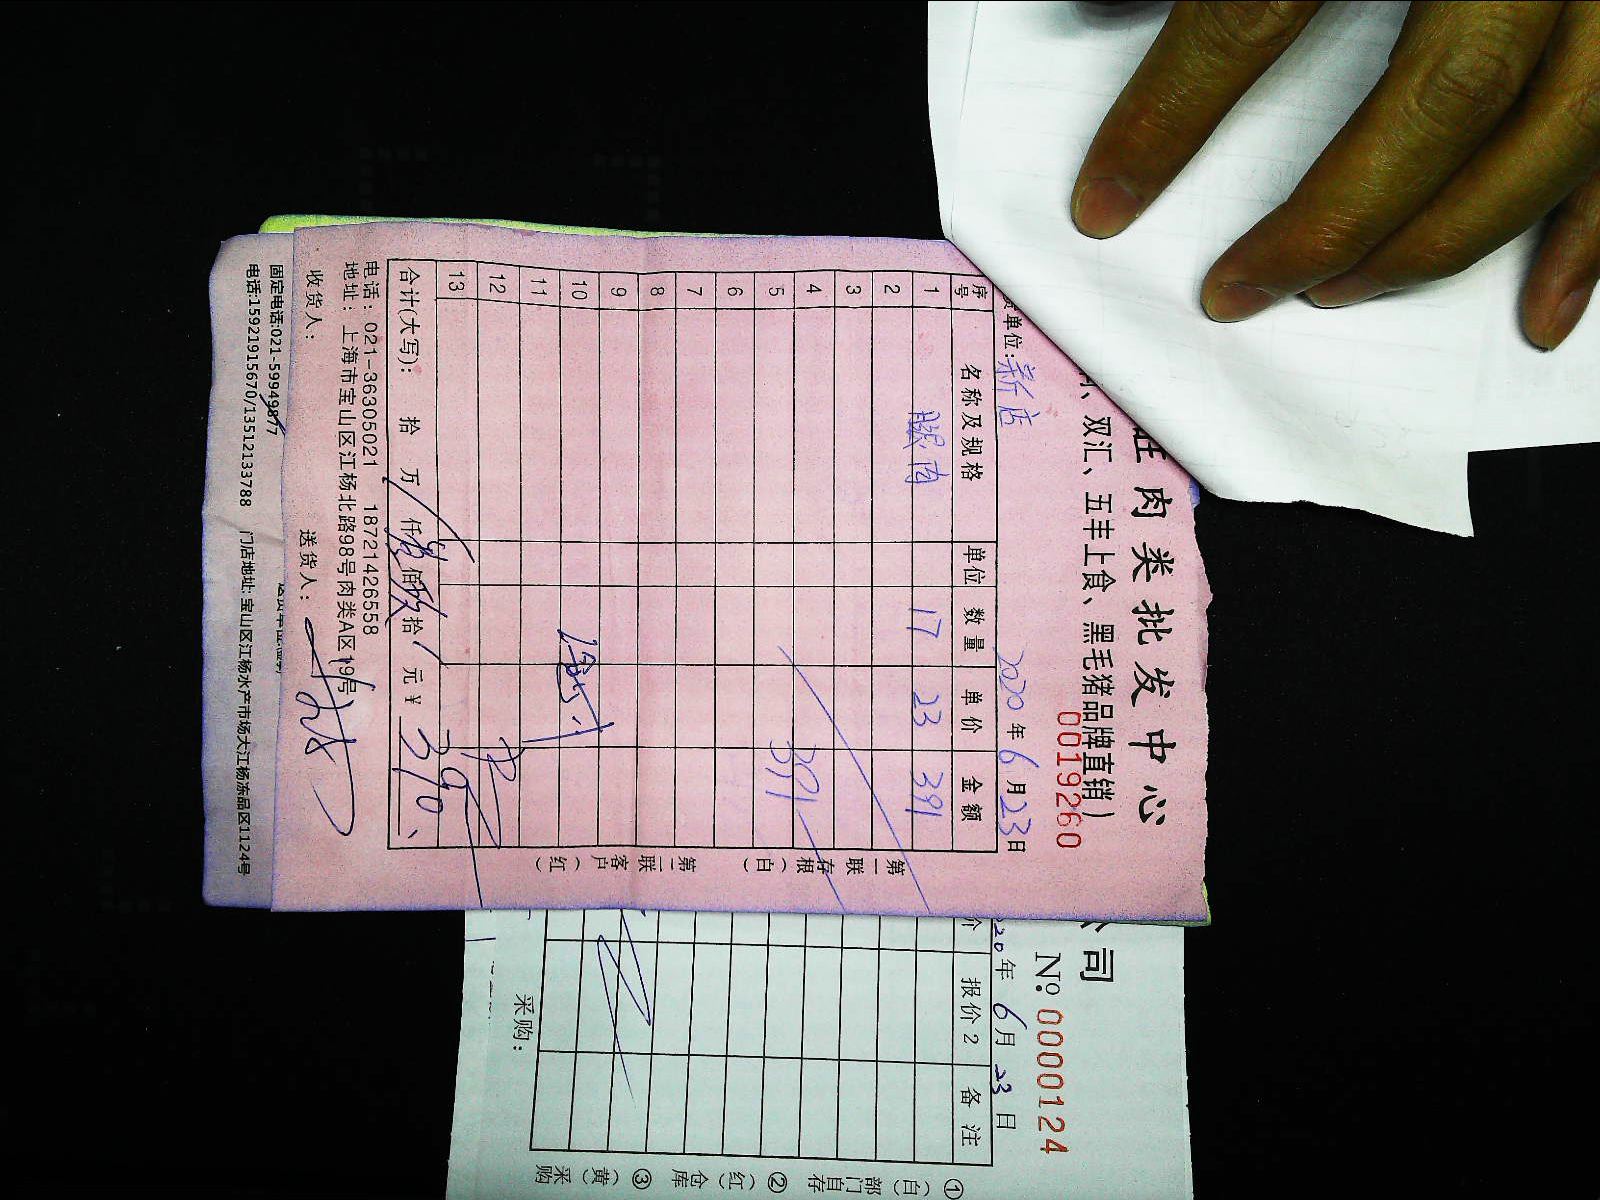 旺肉类批发中心
、双汇、五丰上食、黑毛猪品牌直销)
0019260
单位:新店 2020年6月23日
序号 名称及规格 单位 数量 单价 金额
1 腿肉 17 23 391
2
3
4
5 391
6
7
8
9
10
11
12
13
合计(大写): 拾 万 仟 佰 拾 元 ¥
电话: 021-36305021 18721426558
地址: 上海市宝山区江杨北路98号肉类A区19号
收货人: 送货人:
第一联 存根(白) 第二联 客户(红)
固定电话:021-59949877
电话:15921915670/13512133788 门店地址: 宝山区江杨水产市场大江杨冻品区1124号
公司
No.0000124
20年6月23日
价 报价2 备注
采购:
①(白)部门自存 ②(红)仓库 ③(黄)采购